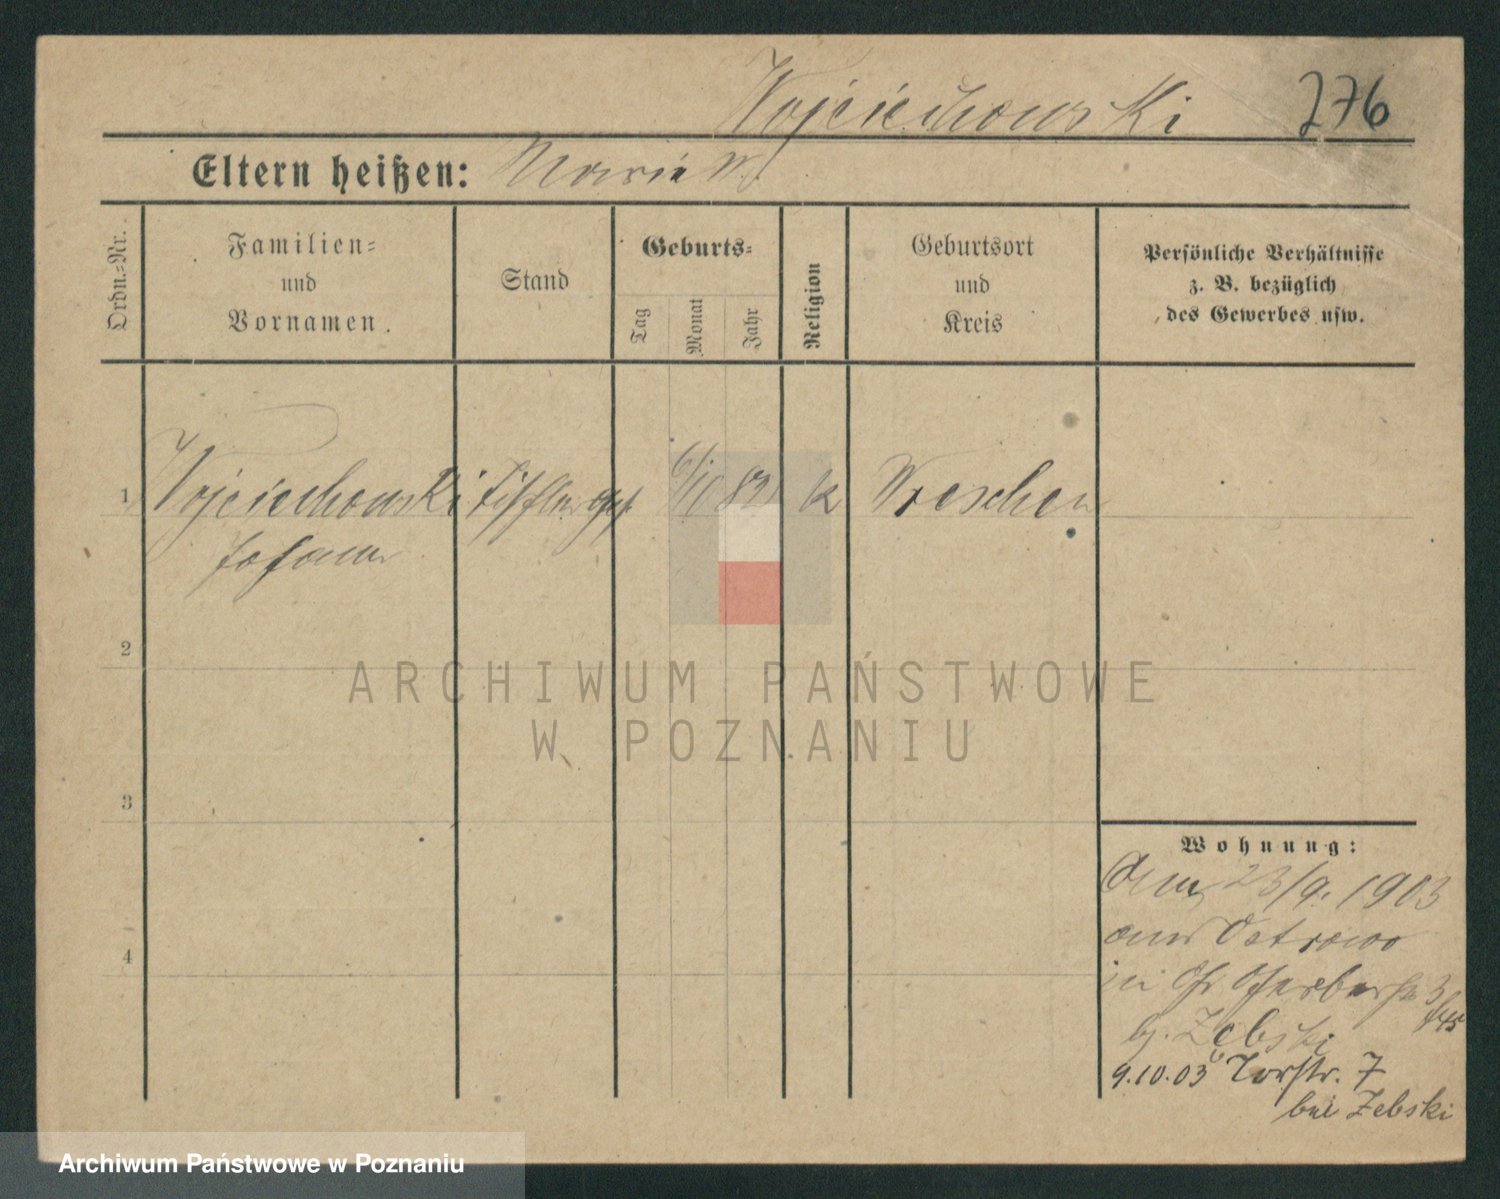 Wojciechowski 276
Eltern heißen: Marie
Ordn.-Nr.
Familien-
und
Vornamen.
Stand
Geburts-
Tag
Monat
Jahr
Religion
Geburtsort
und
Kreis
Persönliche Verhältnisse
z. B. bezüglich
des Gewerbes usw.
1 Wojciechowski Tischlerges. 6/10 82 k Wreschen
Johann
2
3
4
Wohnung:
Am 23/9. 1903
aus Ostrowo
in Gr Gerberstr 3
b. Zebski
9.10.03 Torstr. 7
bei Zebski
ARCHIWUM PAŃSTWOWE
W POZNANIU
Archiwum Państwowe w Poznaniu